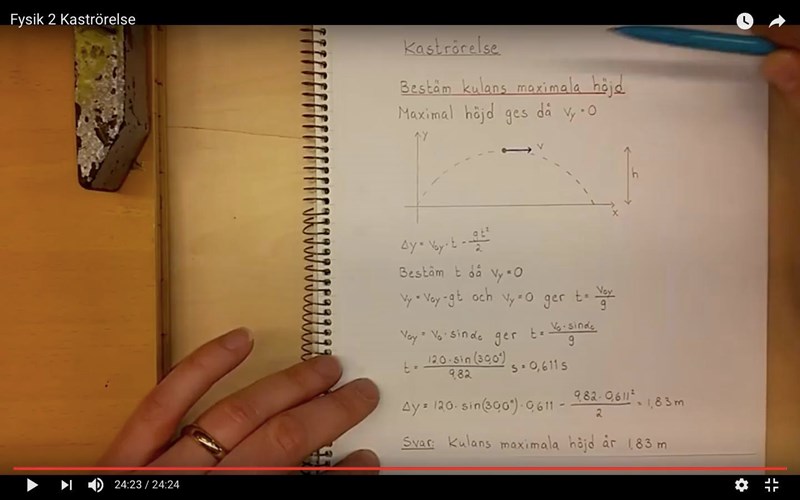 Fysik 2 Kaströrelse
Kaströrelse
Bestäm kulans maximala höjd
Maximal höjd ges då v_y = 0
y
v
h
x
Δy = v_0y · t - gt²/2
Bestäm t då v_y = 0
v_y = v_0y - gt och v_y = 0 ger t = v_0y/g
v_0y = v_0 · sinα ger t = v_0 · sinα/g
t = 12,0 · sin(30,0°)/9,82 s = 0,611 s
Δy = 12,0 · sin(30,0°) · 0,611 - 9,82 · 0,611²/2 = 1,83 m
Svar: Kulans maximala höjd är 1,83 m
24:23 / 24:24